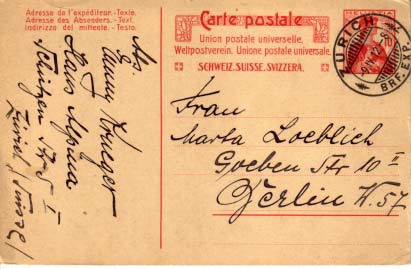 Adresse de l'expéditeur. - Texte.
Adresse des Absenders. - Text.
Indirizzo del mittente. - Testo.
Carte postale
Union postale universelle.
Weltpostverein. Unione postale universale.
SCHWEIZ. SUISSE. SVIZZERA.
HELVETIA
10
ZÜRICH
BRF. EXP.
Frau
Marta Loeblich
Goeben Str 10 II
Berlin W. 57
Anny Krueger
Haus
Zürich (Suisse)